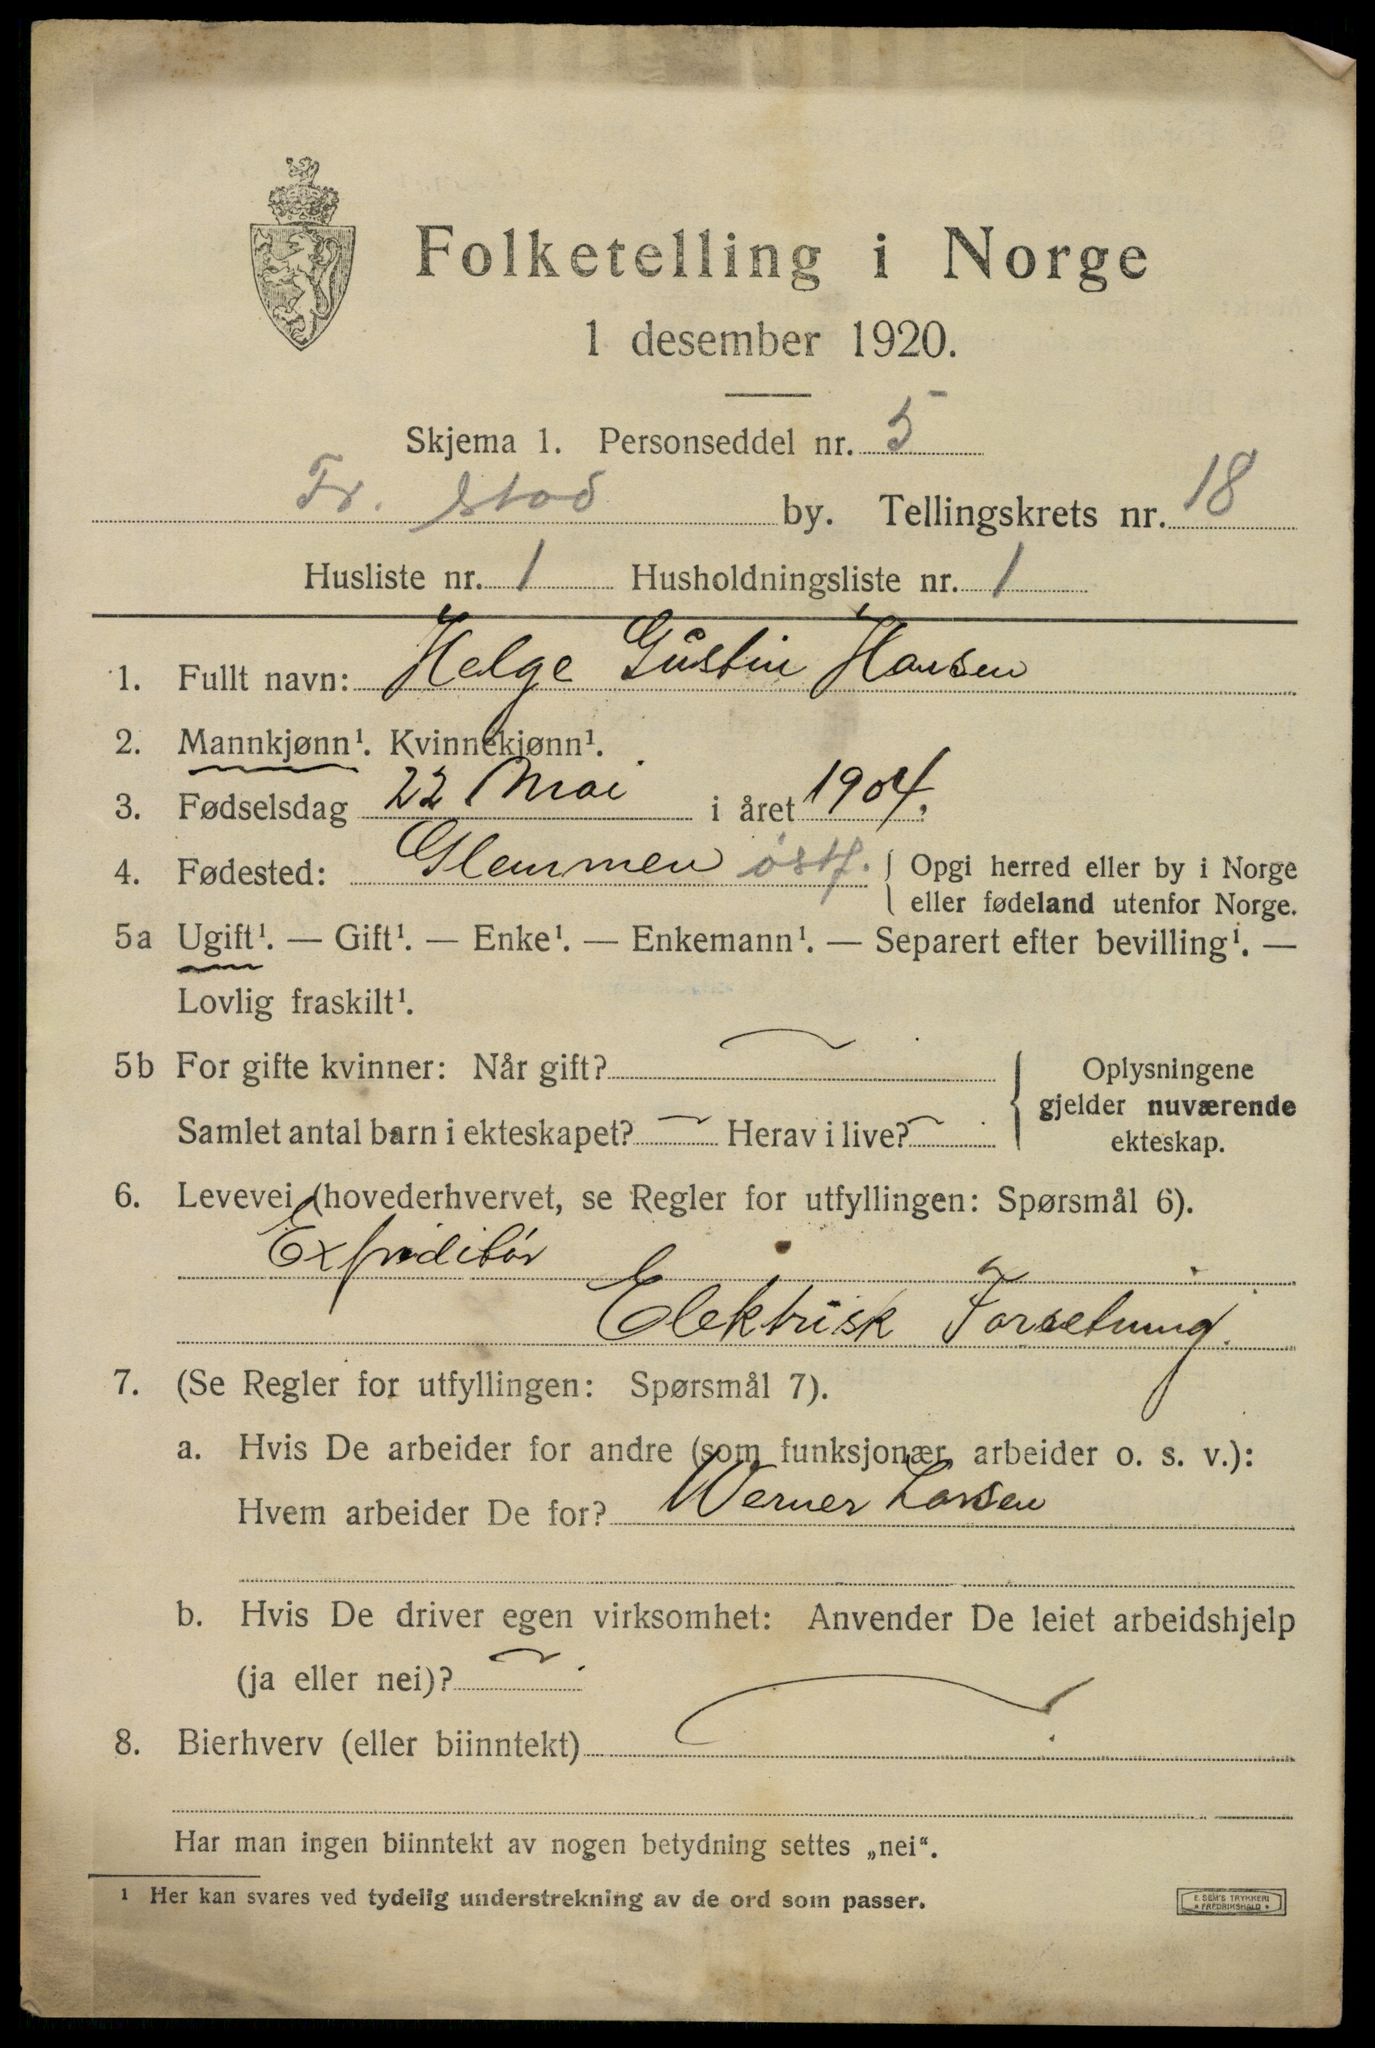 Folketelling i Norge
1 desember 1920.
Skjema 1. Personseddel nr. 5
Fr. stad by. Tellingskrets nr. 18
Husliste nr. 1 Husholdningsliste nr. 1
1. Fullt navn: Helge Gustin Hansen
2. Mannkjønn¹. Kvinnekjønn¹.
3. Fødselsdag 22 Mai i året 1904.
4. Fødested: Glemmen østf. { Opgi herred eller by i Norge
eller fødeland utenfor Norge.
5a Ugift¹. — Gift¹. — Enke¹. — Enkemann¹. — Separert efter bevilling¹. —
Lovlig fraskilt¹.
5b For gifte kvinner: Når gift?
Samlet antal barn i ekteskapet? Herav i live?
{ Oplysningene
gjelder nuværende
ekteskap.
6. Levevei (hovederhvervet, se Regler for utfyllingen: Spørsmål 6).
Expriditør
Elektrisk Forretning.
7. (Se Regler for utfyllingen: Spørsmål 7).
a. Hvis De arbeider for andre (som funksjonær, arbeider o. s. v.):
Hvem arbeider De for? Werner Larsen
b. Hvis De driver egen virksomhet: Anvender De leiet arbeidshjelp
(ja eller nei)?
8. Bierhverv (eller biinntekt)
Har man ingen biinntekt av nogen betydning settes „nei“.
¹ Her kan svares ved tydelig understrekning av de ord som passer.
E. SEM'S TRYKKERI
* FREDRIKSHALD *